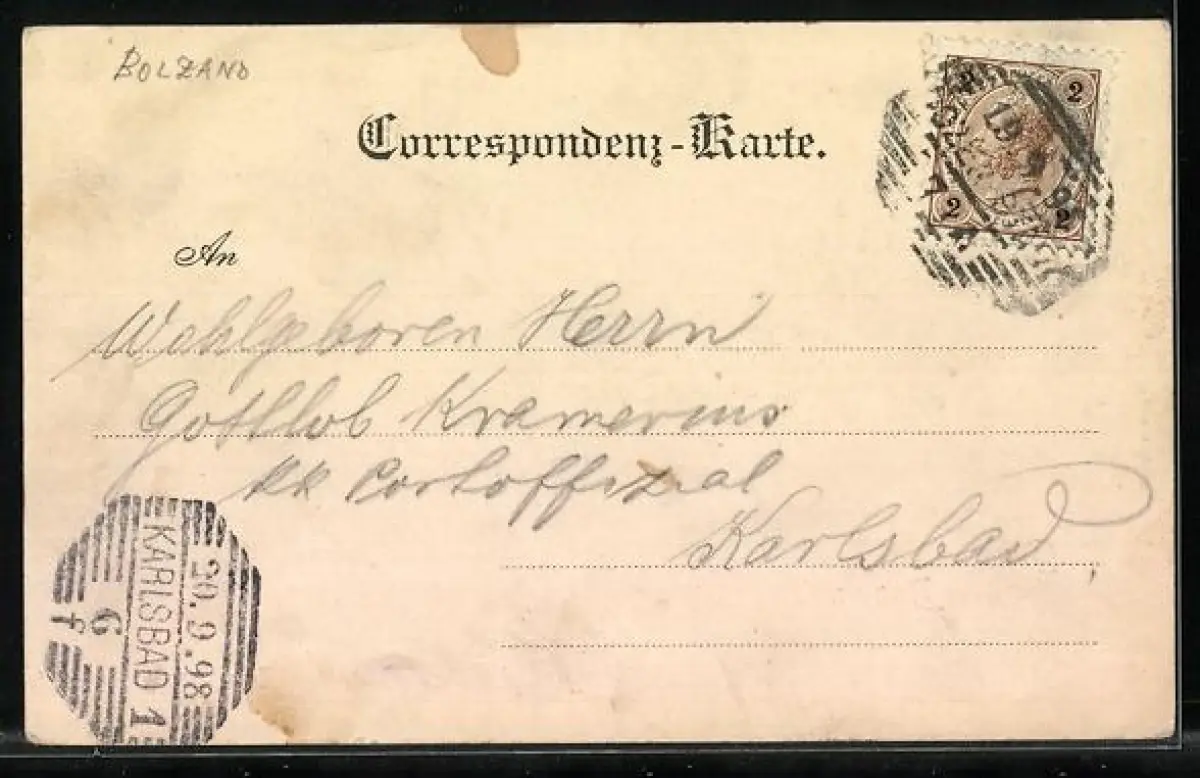 BOLZANO
Correspondenz-Karte.
2
2
2
19
An
Wohlgeboren Herrn
Gottlob Kramerius
kk Postoffizial
Karlsbad
KARLSBAD 1
20.9.98
6
f